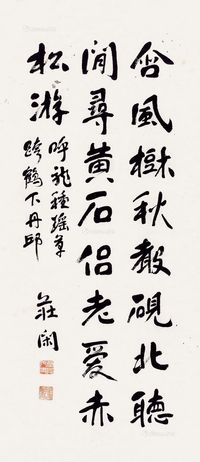 含風樹秋聲硯北聽
閒尋黃石侶老愛赤
松游
呼龍種瑤草
跨鶴下丹邱
莊閑